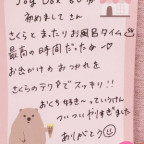 Joy Box 80分
初めまして さん
さくらとまったりお風呂タイム♨
最高の時間だったな〜♡
お出かけの おつかれを
さくらのテクでスッキリ!!
おくち好き〜っていうけん
ついついやりすぎました
ありがとう